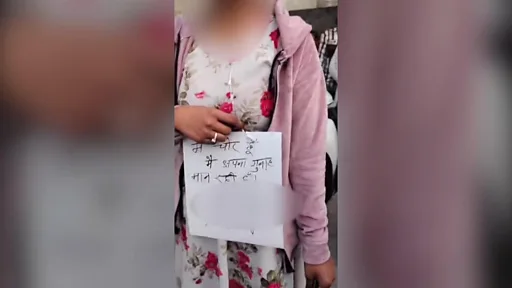 मैं चोर हूँ
मैं अपना गुनाह
मान रही हूँ।